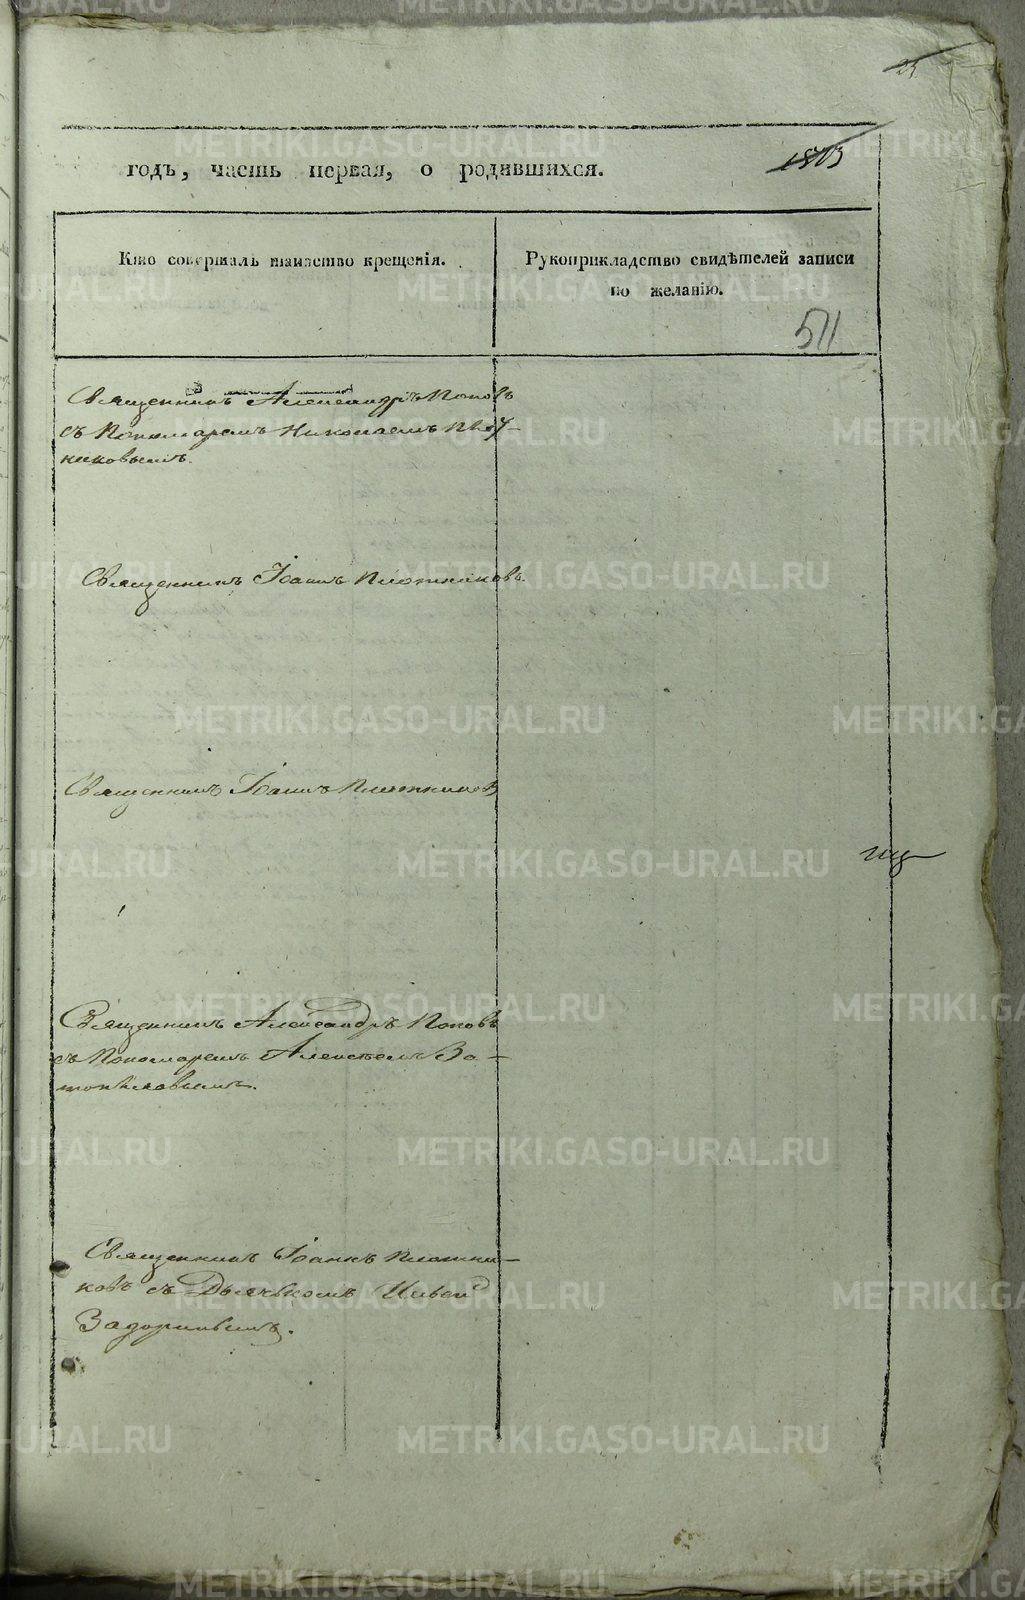 25
1803
годъ, часть первая, о родившихся.
Кто совершалъ таинство крещенія.
Рукоприкладство свидѣтелей записи
по желанію.
511
Священникъ Александръ Поповъ
съ Пономаремъ Николаемъ
никовымъ.
Священникъ Іоаннъ Плотниковъ.
Священникъ Іоаннъ Плотниковъ
Священникъ Александръ Поповъ
съ Пономаремъ Алексѣемъ За-
топляевымъ.
Священникъ Іоаннъ Плотни-
ковъ съ Дьячькомъ Ильей
Задоринымъ.
METRIKI.GASO-URAL.RU